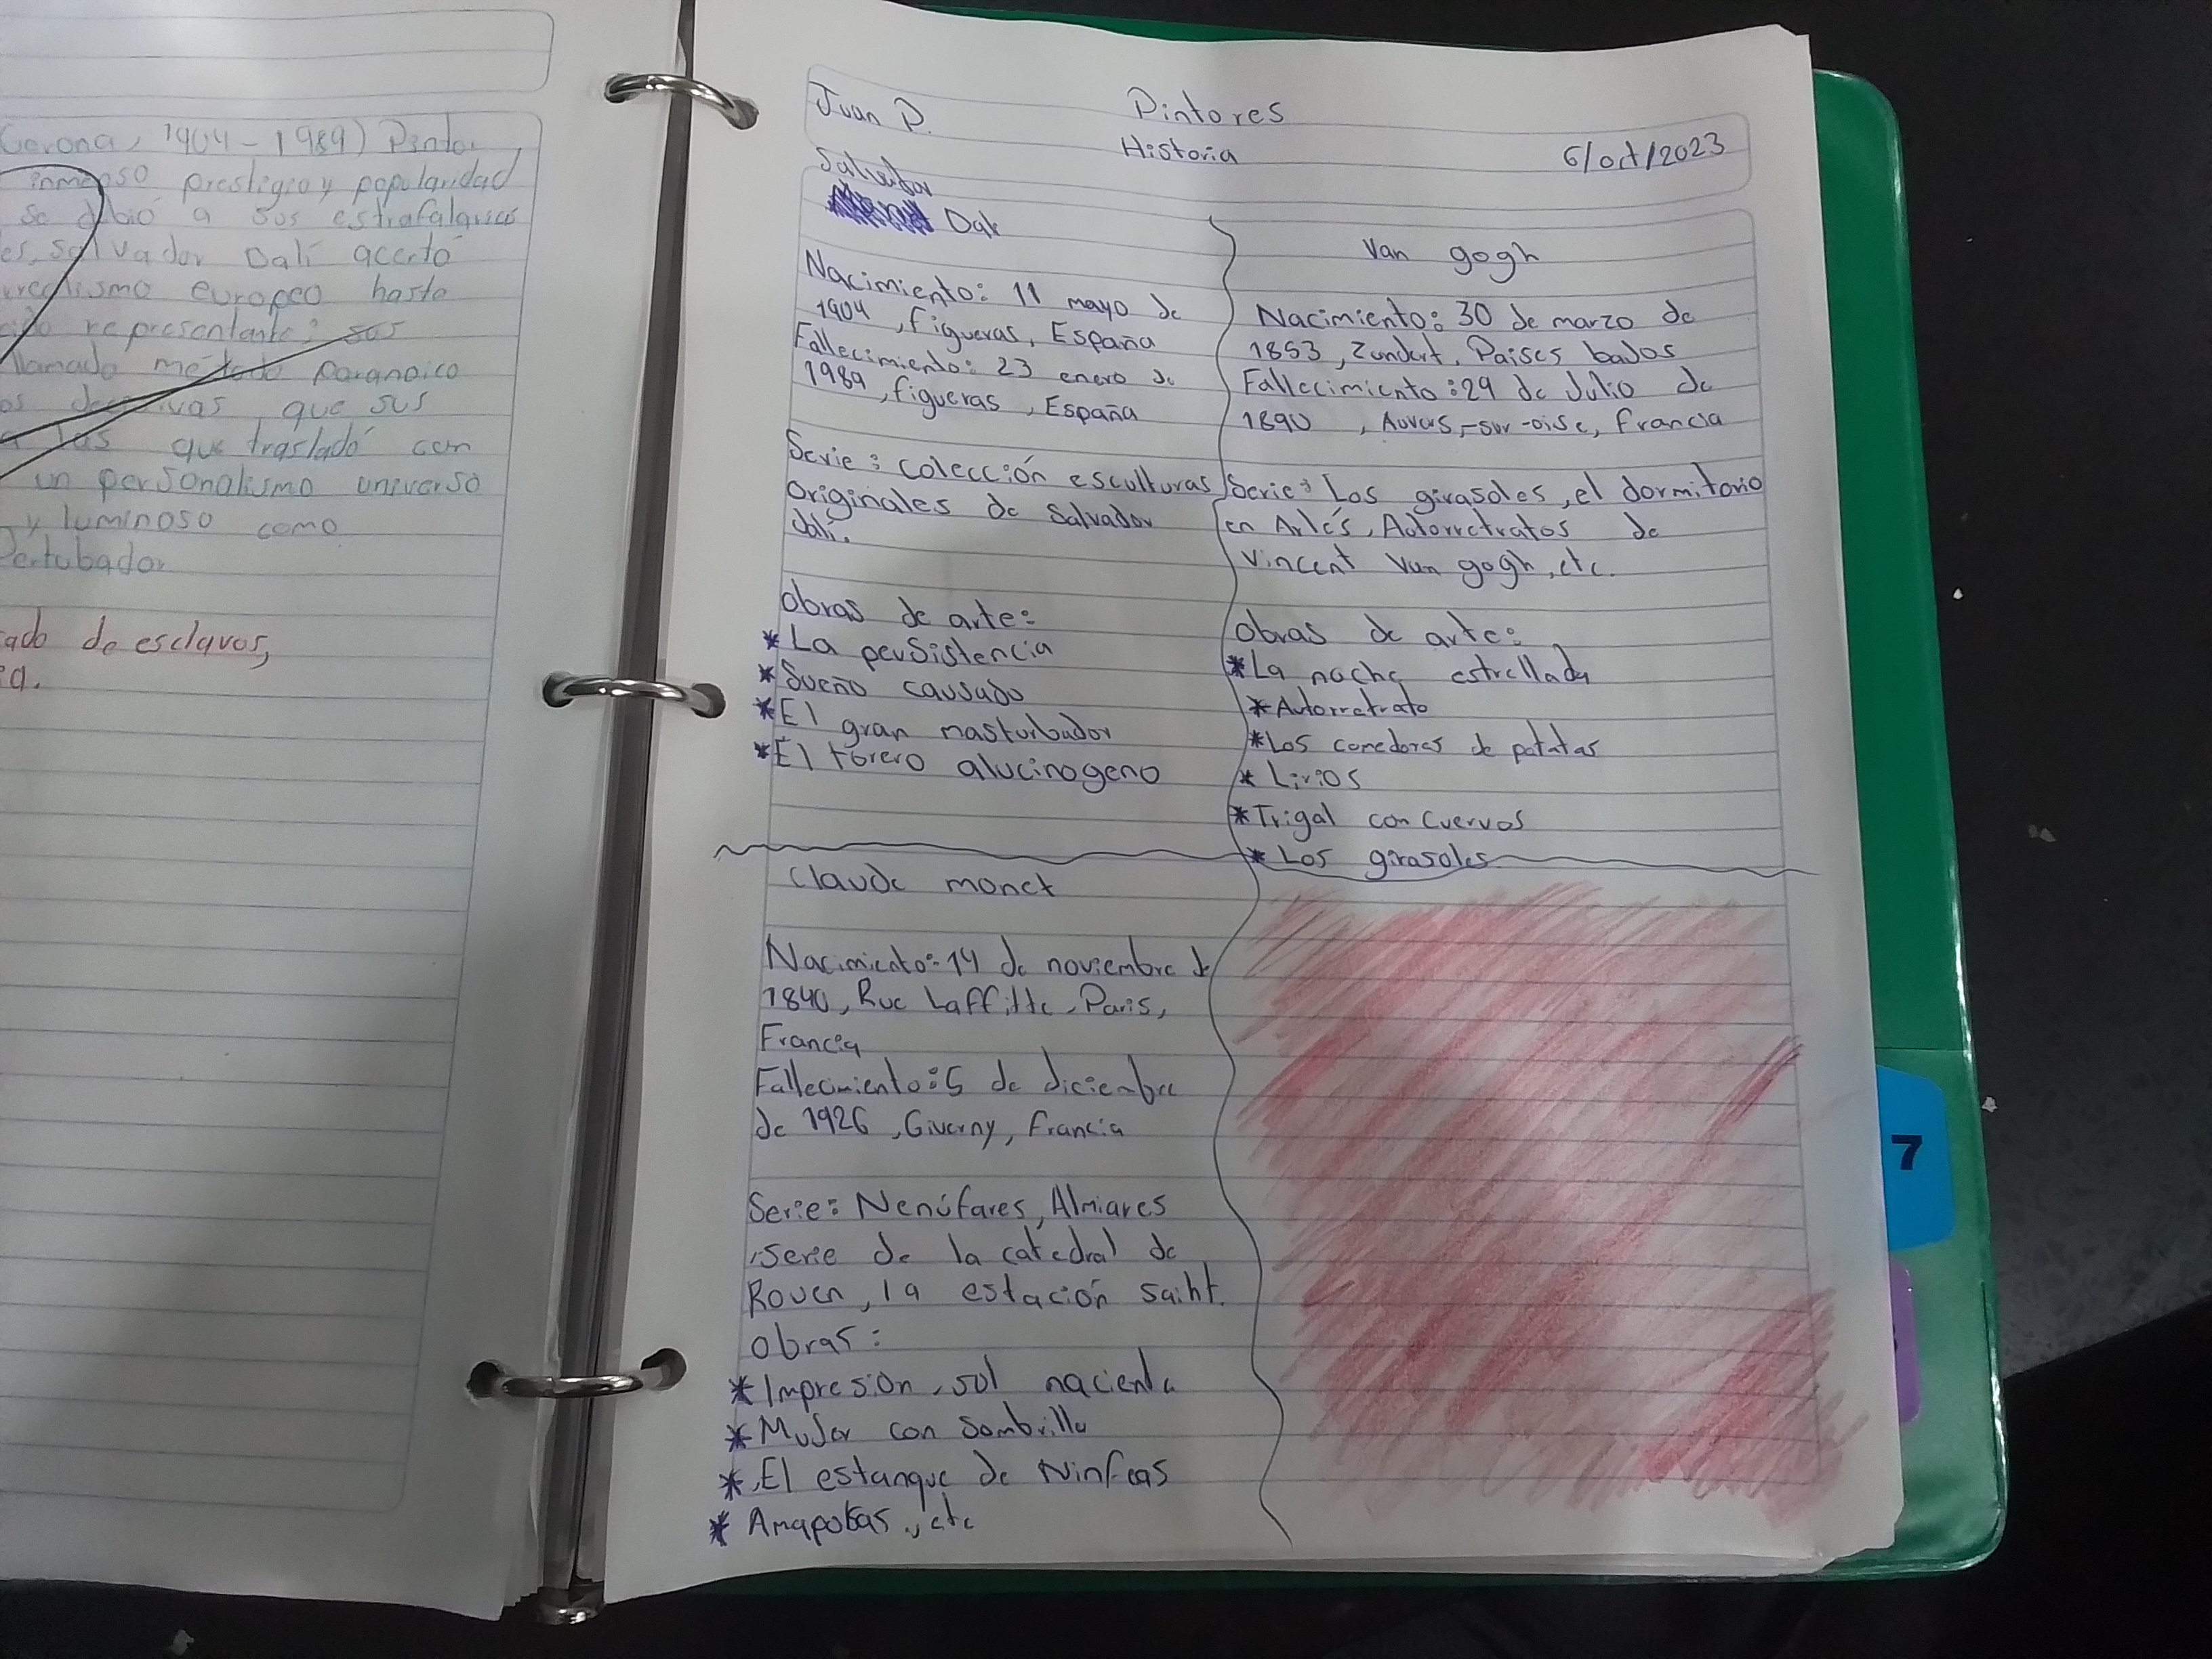 Gerona, 1904-1989) Pintor
inmenso prestigio y popularidad
se debió a sus estrafalarias
es, salvador Dalí acertó
rrealismo europeo hasta
representante; sus
llamado método paranoico
os que sus
a las que trasladó con
un personalismo universo
y luminoso como
Pertubador
ado de esclavos,
ia.
Pintores
Juan P.
Historia
6/oct/2023
Salvador
Dali
Nacimiento: 11 mayo de
1904, Figueras, España
Fallecimiento: 23 enero de
1989, figueras, España
Serie: colección esculturas
Originales de Salvador
dalí.
obras de arte:
* La persistencia
* Sueño causado
* El gran masturbador
* El torero alucinogeno
Van gogh
Nacimiento: 30 de marzo de
1853, Zundert, Paises bajos
Fallecimiento: 29 de Julio de
1890, Auvers,-sur-oise, francia
Serie: Los girasoles, el dormitorio
en Arlés, Autorretratos de
Vincent Van gogh, etc.
obras de arte:
* La noche estrellada
* Autorretrato
* Los comedores de patatas
* Lirios
* Trigal con Cuervos
* Los girasoles
Claude monet
Nacimiento: 14 de noviembre de
1840, Rue Laffitte, Paris,
Francia
Fallecimiento: 5 de diciembre
de 1926, Giverny, Francia
Serie: Nenúfares, Almiares
, serie de la catedral de
Rouen, la estación saint.
obras:
* Impresión, sol naciente
* Mujer con Sombrilla
* El estanque de Ninfeas
* Amapolas, etc
7